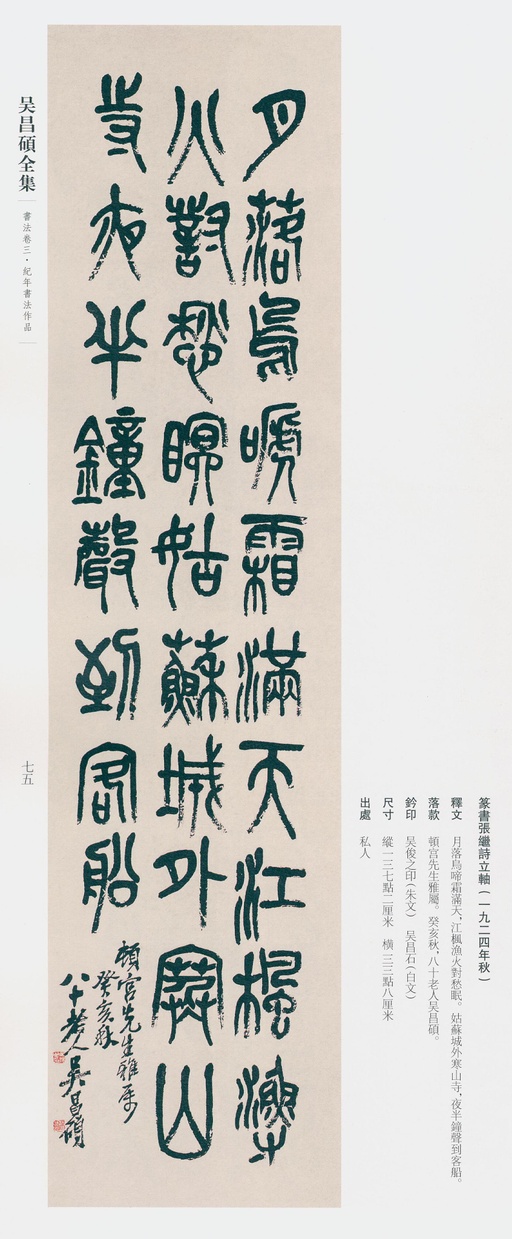 篆書張繼詩立軸(一九二四年秋)
釋文 月落烏啼霜滿天,江楓漁火對愁眠。姑蘇城外寒山寺,夜半鐘聲到客船。
落款 頓宮先生雅屬。癸亥秋,八十老人吴昌碩。
鈐印 吴俊之印(朱文) 吴昌石(白文)
尺寸 縱一三七點二厘米 横三三點八厘米
出處 私人
月落烏嗁霜滿天江楓漁
火對愁眠姑蘇城外寒山
寺夜半鐘聲到客船
頓宮先生雅屬
癸亥秋
八十老人吴昌碩
吴昌碩全集
書法卷三·紀年書法作品
七五